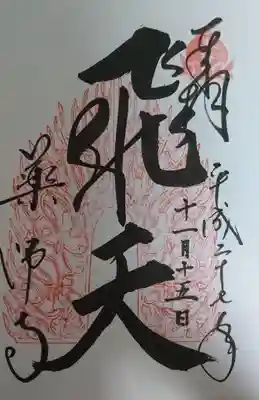 奉拝
平成二十七年
十一月十五日
飛天
薬師寺